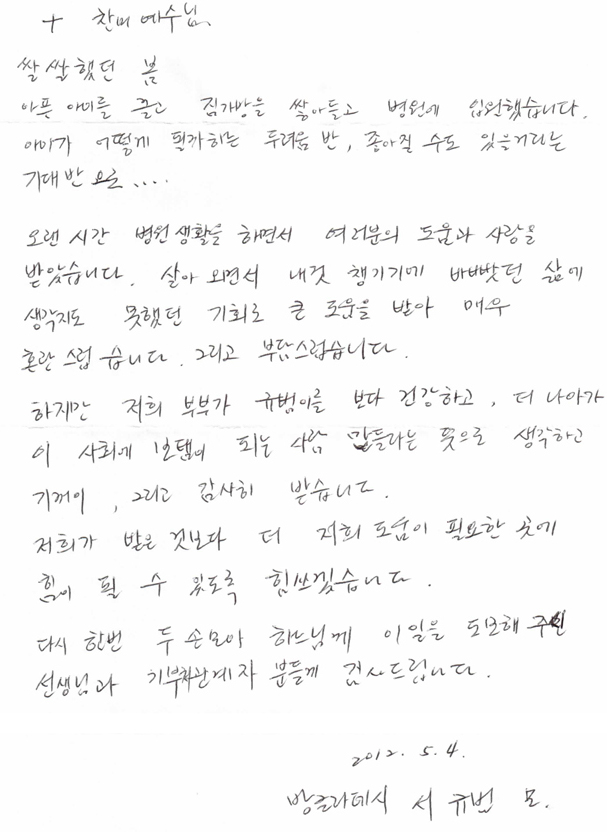 + 찬미 예수님
쌀쌀했던 봄
아픈 아이를 끌고 짐가방을 쌓아들고 병원에 입원했습니다.
아이가 어떻게 될까하는 두려움 반, 좋아질 수도 있을거라는
기대반 으로....
오랜 시간 병원생활을 하면서 여러분의 도움과 사랑을
받았습니다. 살아 오면서 내것 챙기기에 바빠빳던 삶에
생각지도 못했던 기회로 큰 도움을 받아 매우
혼란 스럽 습니다. 그리고 부담스럽습니다.
하지만 저희 부부가 규범이를 보다 건강하고, 더 나아가
이 사회에 보탬이 되는 사람 만들라는 뜻으로 생각하고
기꺼이, 그리고 감사히 받습니다.
저희가 받은 것보다 더 저희 도움이 필요한 곳에
힘이 될 수 있도록 힘쓰겠습니다.
다시 한번 두 손모아 하느님께 이일을 도모해 주신
선생님과 기부차관계자 분들께 감사드립니다.
2012. 5. 4.
서 규범 모.